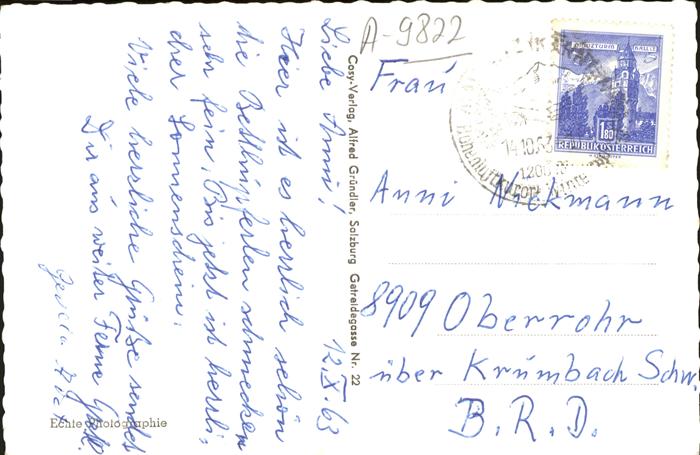 12.X.63
Liebe Anni!
Hier ist es herrlich schön
die Betthupferlen schmecken
sehr fein. Bis jetzt ist herrli-
cher Sonnenschein.
Viele herzliche Grüße sendet
Dir aus weiter Ferne
Echte Photographie
Cosy-Verlag, Alfred Gründler, Salzburg Getreidegasse Nr. 22
A-9822
MÜNZTURM HALL i. T.
1.80
REPUBLIK ÖSTERREICH
14.10.63
Höhenluftkurort
Frau
Anni Nickmann
8909 Oberrohr
über Krumbach Schw.
B.R.D.